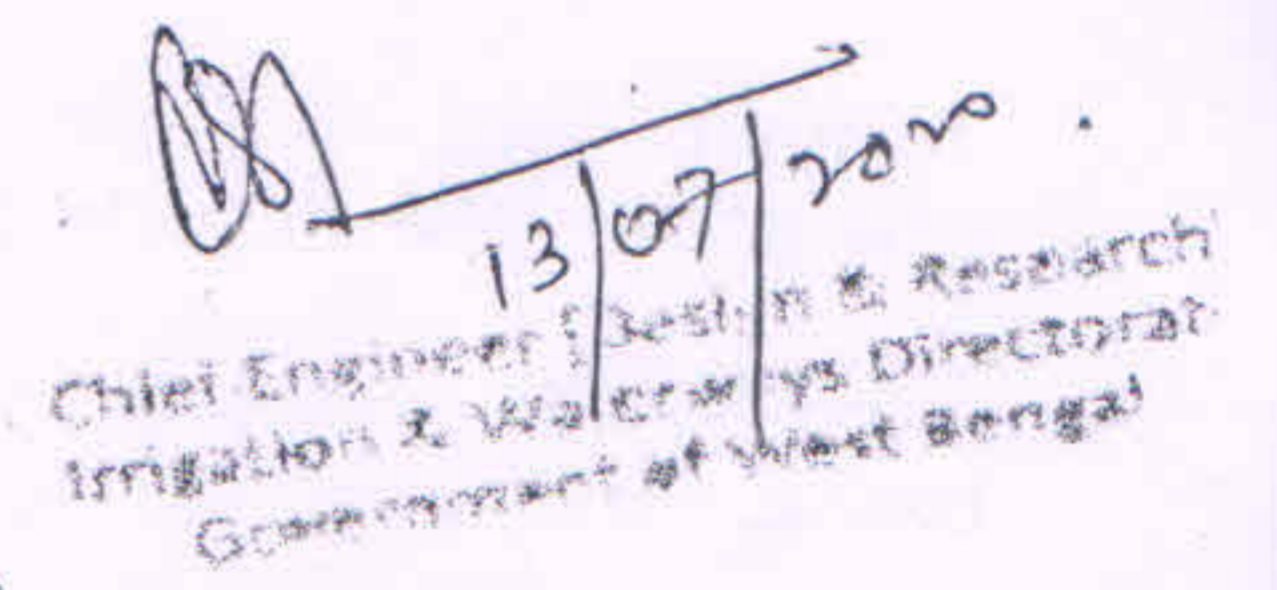 13/07/2020
Chief Engineer (Design & Research
Irrigation & Waterways Directorat
Government of West Bengal